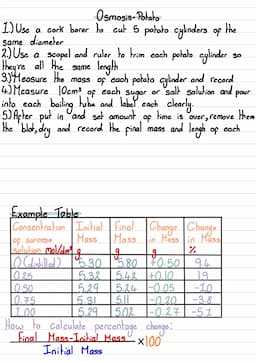 Osmosis-Potato
1.) Use a cork borer to cut 5 potato cylinders of the
same diameter
2.) Use a scapel and ruler to trim each potato cylinder so
they're all the same length
3.) Measure the mass of each potato cylinder and record
4.) Measure 10cm³ of each sugar or salt solution and pour
into each boiling tube and label each clearly.
5.) After put in and set amount of time is over, remove them
the blot, dry and record the final mass and length of each
Example Table
Concentration of sucrose solution mol/dm³ Initial Mass g Final Mass g Change in Mass g Change in Mass %
0 (distilled) 5.30 5.80 +0.50 9.4
0.25 5.32 5.42 +0.10 1.9
0.50 5.29 5.24 -0.05 -1.0
0.75 5.31 5.11 -0.20 -3.8
1.00 5.29 5.02 -0.27 -5.1
How to calculate percentage change:
Final Mass-Initial Mass ×100
Initial Mass